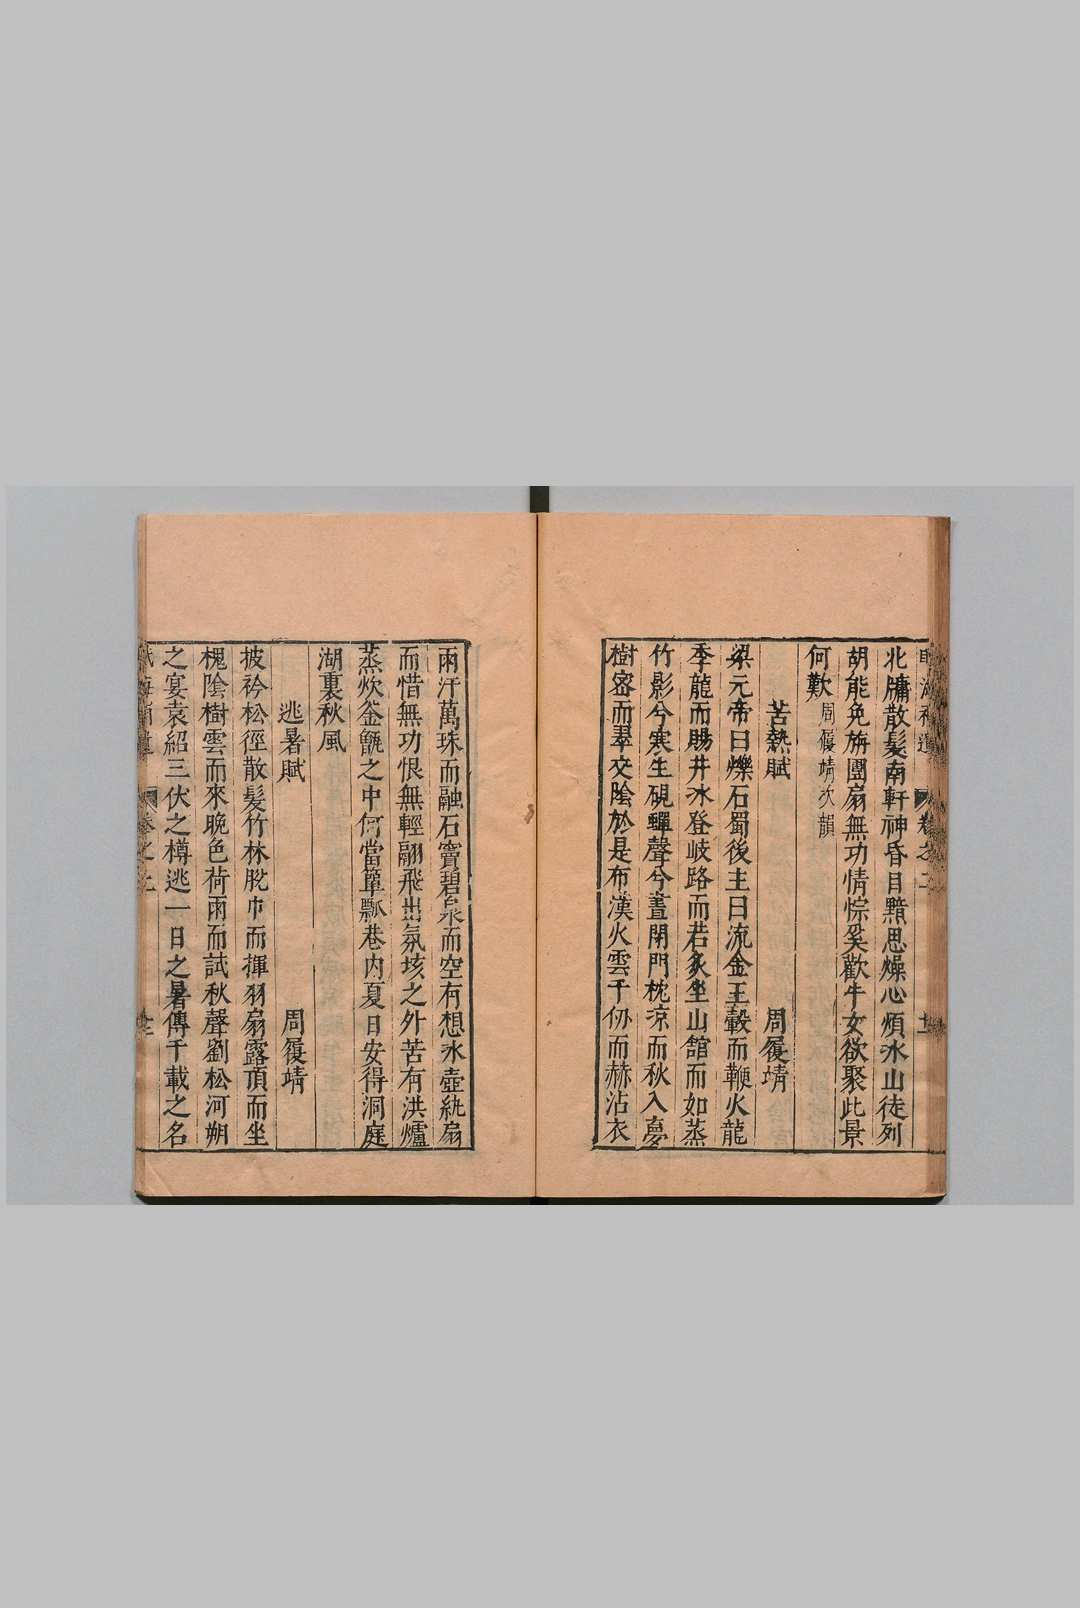 北牖散髮南軒神昏目黯思燥心煩氷山徒列
胡能免旃團扇無功情悰奚歡牛女欲聚此景
何歎周履靖次韻
苦熱賦
周履靖
梁元帝曰爍石蜀後主曰流金王轂而鞭火龍
季龍而賜井氷登岐路而若炙坐山館而如蒸
竹影兮寒生硯蟬聲兮晝閉門枕凉而秋入夢
樹密而翠交陰於是布漢火雲千仞而赫沾衣
雨汗萬珠而融石竇碧泉而空有想氷壺紈扇
而惜無功恨無輕翮飛出氛垓之外苦有洪爐
蒸炊釜甑之中何當簞瓢巷内夏日安得洞庭
湖裏秋風
逃暑賦
周履靖
披衿松徑散髮竹林脫巾而揮羽扇露頂而坐
槐陰樹雲而來晚色荷雨而試秋聲劉松河朔
之宴袁紹三伏之樽逃一日之暑傳千載之名